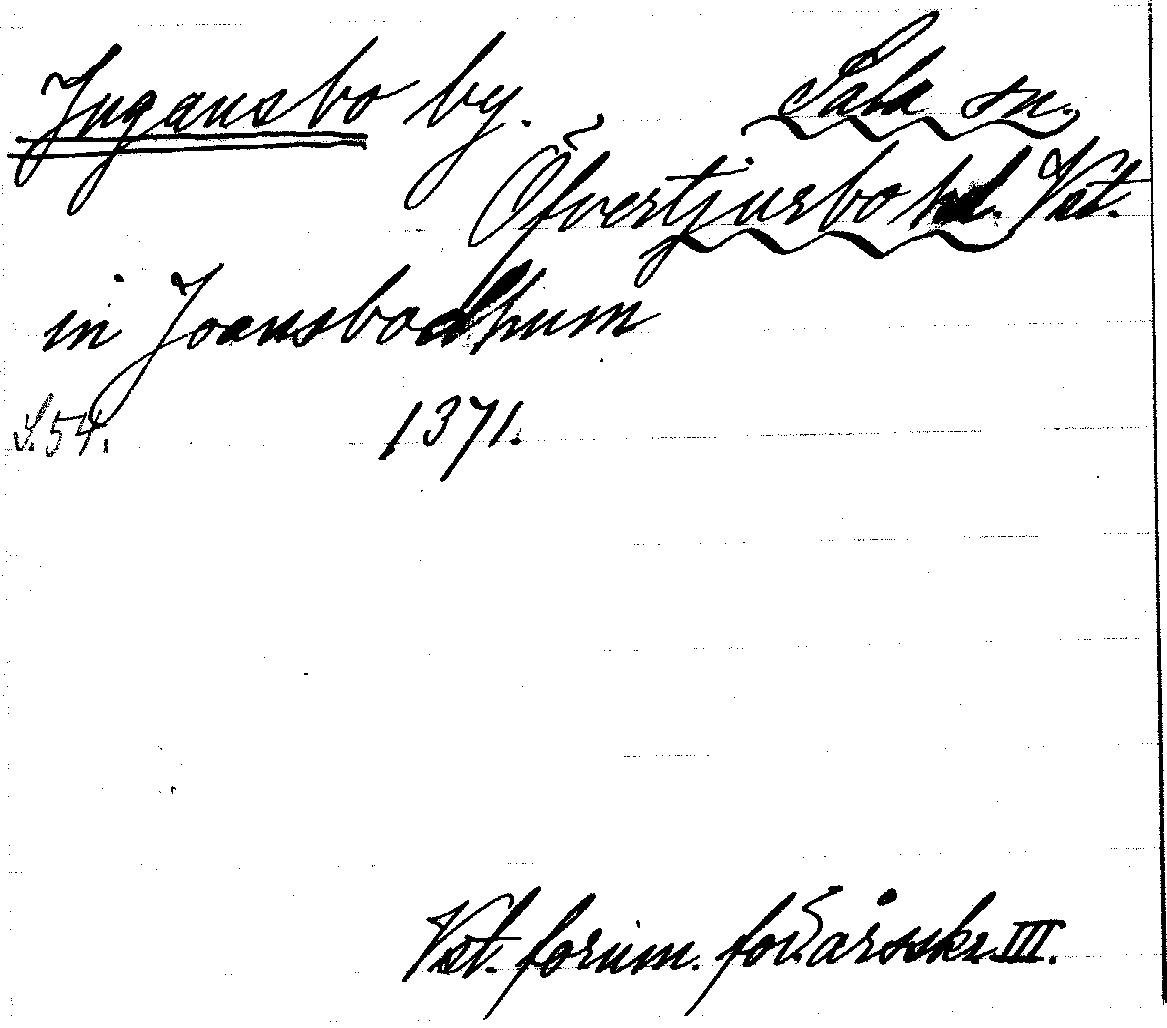 Jugansbo by. Sala sn.
Öfvertjursbo hd. Vst.
in Joansbodhum
S. 54. 1371.
Vst. fornm. för. årsskr. III.